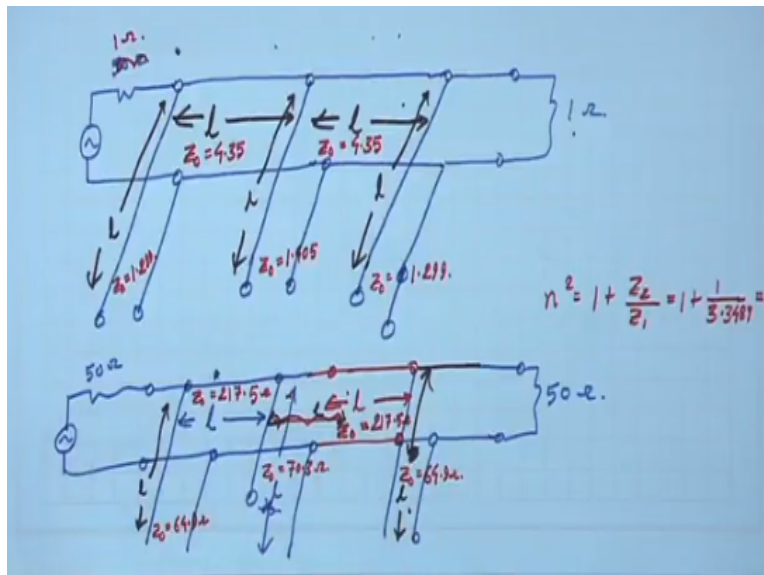 1Ω.
l
l
Z₀=4.35
Z₀=4.35
1Ω.
l
l
l
Z₀=1.299.
Z₀=1.405
Z₀= 1.299.
n² = 1 + Z₂/Z₁ = 1 + 1/3.3489 =
50Ω
Z₀=217.5Ω
l
l
l
Z₀=217.5Ω
50Ω.
l
Z₀=70.3Ω
Z₀=64.9Ω
l
l
Z₀=64.9Ω